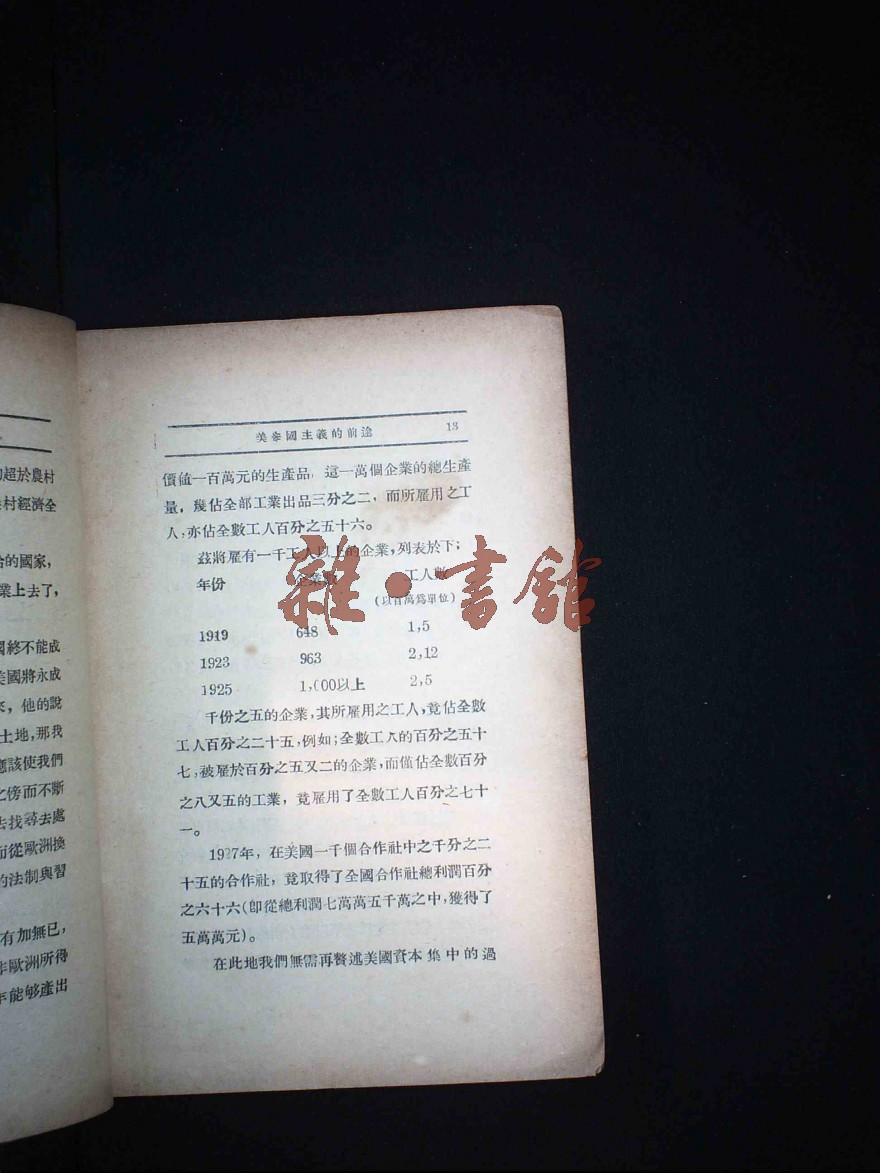 切超於農村
村經濟全
合的國家，
業上去了，
國終不能成
美國將永成
來，他的說
土地，那我
應該使我們
之傍而不斷
去找尋去處
而從歐洲換
的法制與習
有加無已，
非歐洲所得
年能够產出
美麥國主義的前途 13
價值一百萬元的生產品，這一萬個企業的總生產
量，幾佔全部工業出品三分之二，而所雇用之工
人，亦佔全數工人百分之五十六。
茲將雇有一千工人以上的企業，列表於下；
年份 企業數 工人數
（以百萬爲單位）
1919 648 1,5
1923 963 2,12
1925 1,000以上 2,5
千份之五的企業，其所雇用之工人，竟佔全數
工人百分之二十五，例如；全數工人的百分之五十
七，被雇於百分之五又二的企業，而僅佔全數百分
之八又五的工業，竟雇用了全數工人百分之七十
一。
1927年，在美國一千個合作社中之千分之二
十五的合作社，竟取得了全國合作社總利潤百分
之六十六（卽從總利潤七萬萬五千萬之中，獲得了
五萬萬元）。
在此地我們無需再贅述美國資本集中的過
雜·書館